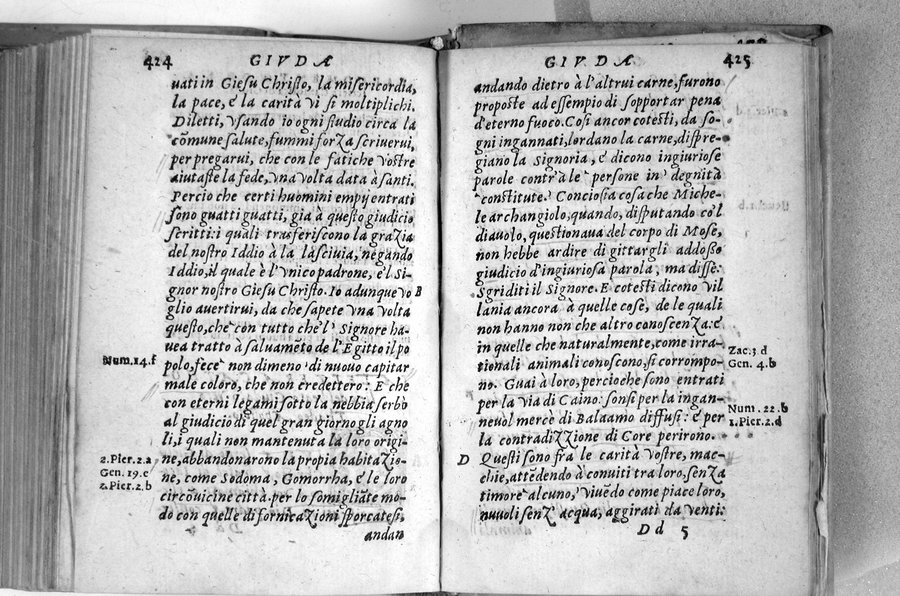 424 GIVDÆ
uati in Giesu Christo, la misericordia,
la pace, e la carità vi si moltiplichi.
Diletti, vsando io ogni studio circa la
cõmune salute, fummi forza scriuerui,
per pregarui, che con le fatiche vostre
aiutaste la fede, vna volta data à santi.
Percio che certi huomini empij entrati
sono guatti guatti, gia à questo giudicio
scritti: i quali trasferiscono la grazia
del nostro Iddio à la lasciuia, negando
Iddio, il quale è l'vnico padrone, e'l Si-
gnor nostro Giesu Christo. Io adunque vo B
glio auertirui, da che sapete vna volta
questo, che con tutto che'l Signore ha-
uea tratto à saluamẽto de l'Egitto il po
Num.14.f
polo, fece non dimeno di nuouo capitar
male coloro, che non credettero: E che
con eterni legami sotto la nebbia serbò
al giudicio di quel gran giorno gli agno
li, i quali non mantenuta la loro origi-
2.Pier.2.a
ne, abbandonarono la propia habitazio-
Gen. 19.c
ne, come Sodoma, Gomorrha, e le loro
2.Pier.2.b
circõuicine città, per lo somigliãte mo-
do con quelle di fornicazioni sporcatesi,
andan
GIVDÆ 425
andando dietro à l'altrui carne, furono
proposte ad essempio di sopportar pena
d'eterno fuoco. Cosi ancor cotesti, da so-
gni ingannati, lordano la carne, dispre-
giano la Signoria, e dicono ingiuriose
parole contr'a le persone in degnità
constitute. Conciosia cosa che Miche-
le archangiolo, quando, disputando co'l
diauolo, questionaua del corpo di Mose,
non hebbe ardire di gittargli addosso
giudicio d'ingiuriosa parola, ma disse:
Sgriditi il Signore. E cotesti dicono vil
lania ancora à quelle cose, de le quali
non hanno non che altro conoscenza: e
in quelle che naturalmente, come irra-
Zac.3 d
tionali animali conoscono, si corrompo-
Gen. 4.b
no. Guai à loro, percioche sono entrati
per la via di Caino: sonsi per la ingan-
Num. 22.b
neuol mercè di Balaamo diffusi: e per
1.Pier.2.d
la contradizzione di Core perirono.
D Questi sono fra le carità vostre, mac-
chie, attẽdendo à conuiti tra loro, senza
timore alcuno, viuẽdo come piace loro,
nuuoli senz' acqua, aggirati da venti:
Dd 5